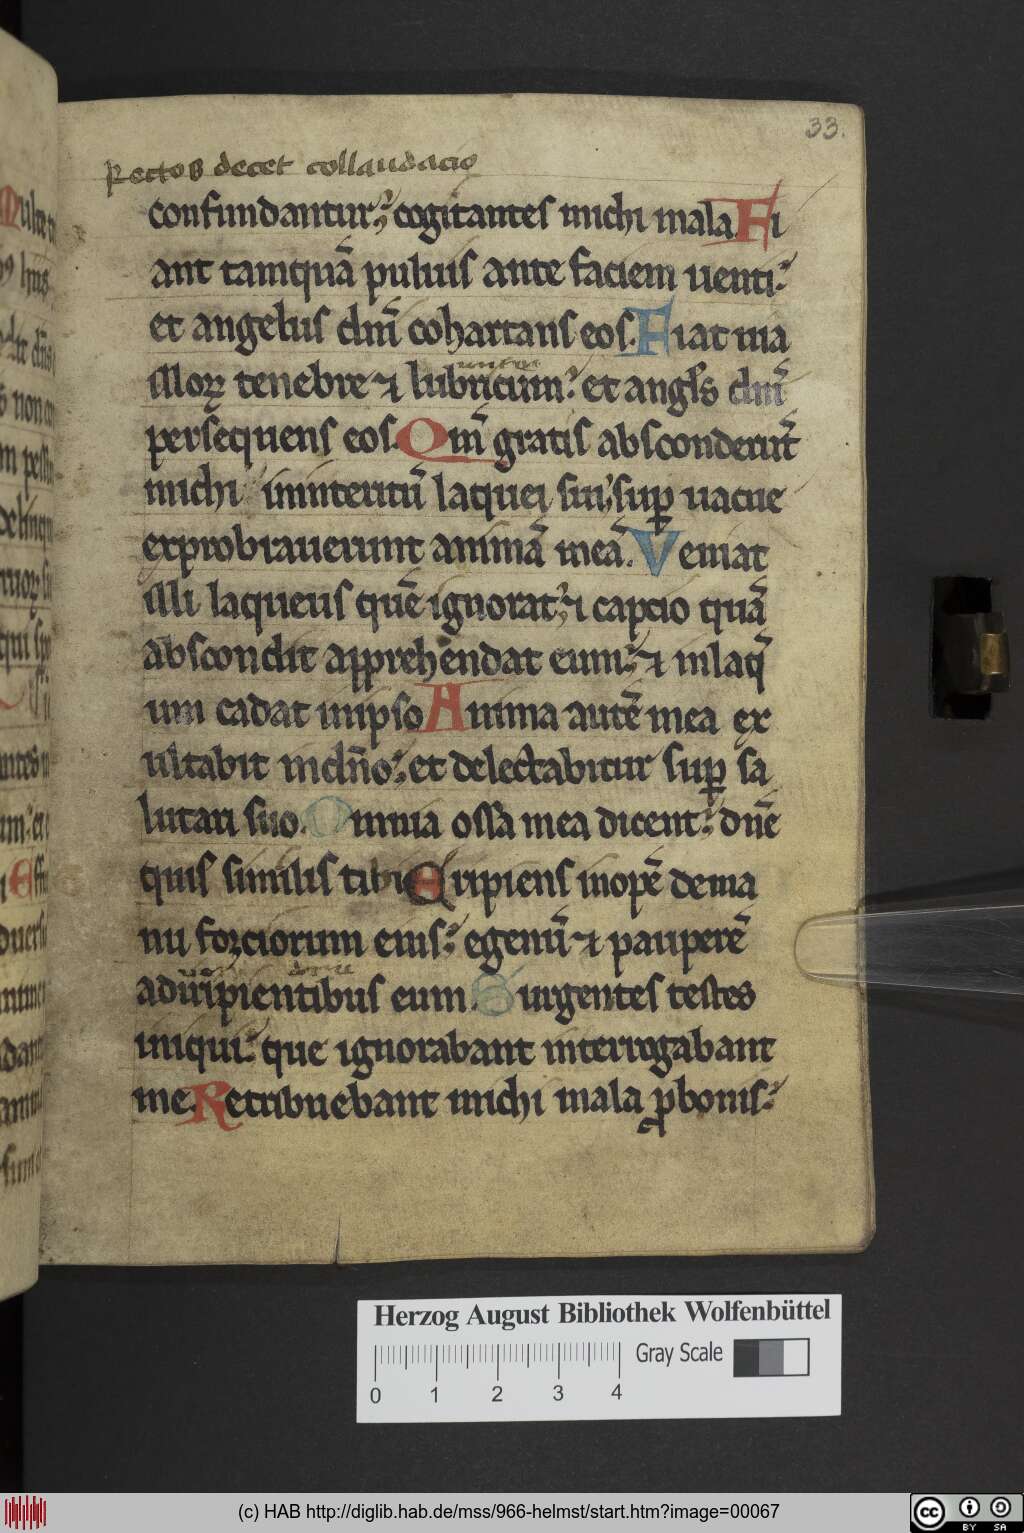 33.
Rectos decet collaudacio
confundantur; cogitantes michi mala. Fi
ant tamquā puluis ante faciem uenti:
et angelus dnī cohartans eos. Fiat uia
illoꝝ tenebre ⁊ lubricum: et angls dnī
persequens eos. Qm̄ gratis absconderūt
michi ininteritū laquei sui; suꝑ uacue
exprobrauerunt animā meā. Veniat
illi laqueus quē ignorat; ⁊ capcio quā
abscondit apprehendat eum: ⁊ inlaq̄
um cadat inipso Anima autē mea ex
ultabit indn̄o: et delectabitur suꝑ sa
lutari suo. Omnia ossa mea dicent: dn̄e
quis similis tibi Eripiens inopē dema
nu forciorum eius: egenū ⁊ pauperē
adiripientibus eum. Surgentes testes
iniqui: que ignorabant interrogabant
me. Retribuebant michi mala ꝓbonis:
Herzog August Bibliothek Wolfenbüttel
Gray Scale
0 1 2 3 4
(c) HAB http://diglib.hab.de/mss/966-helmst/start.htm?image=00067
cc BY SA